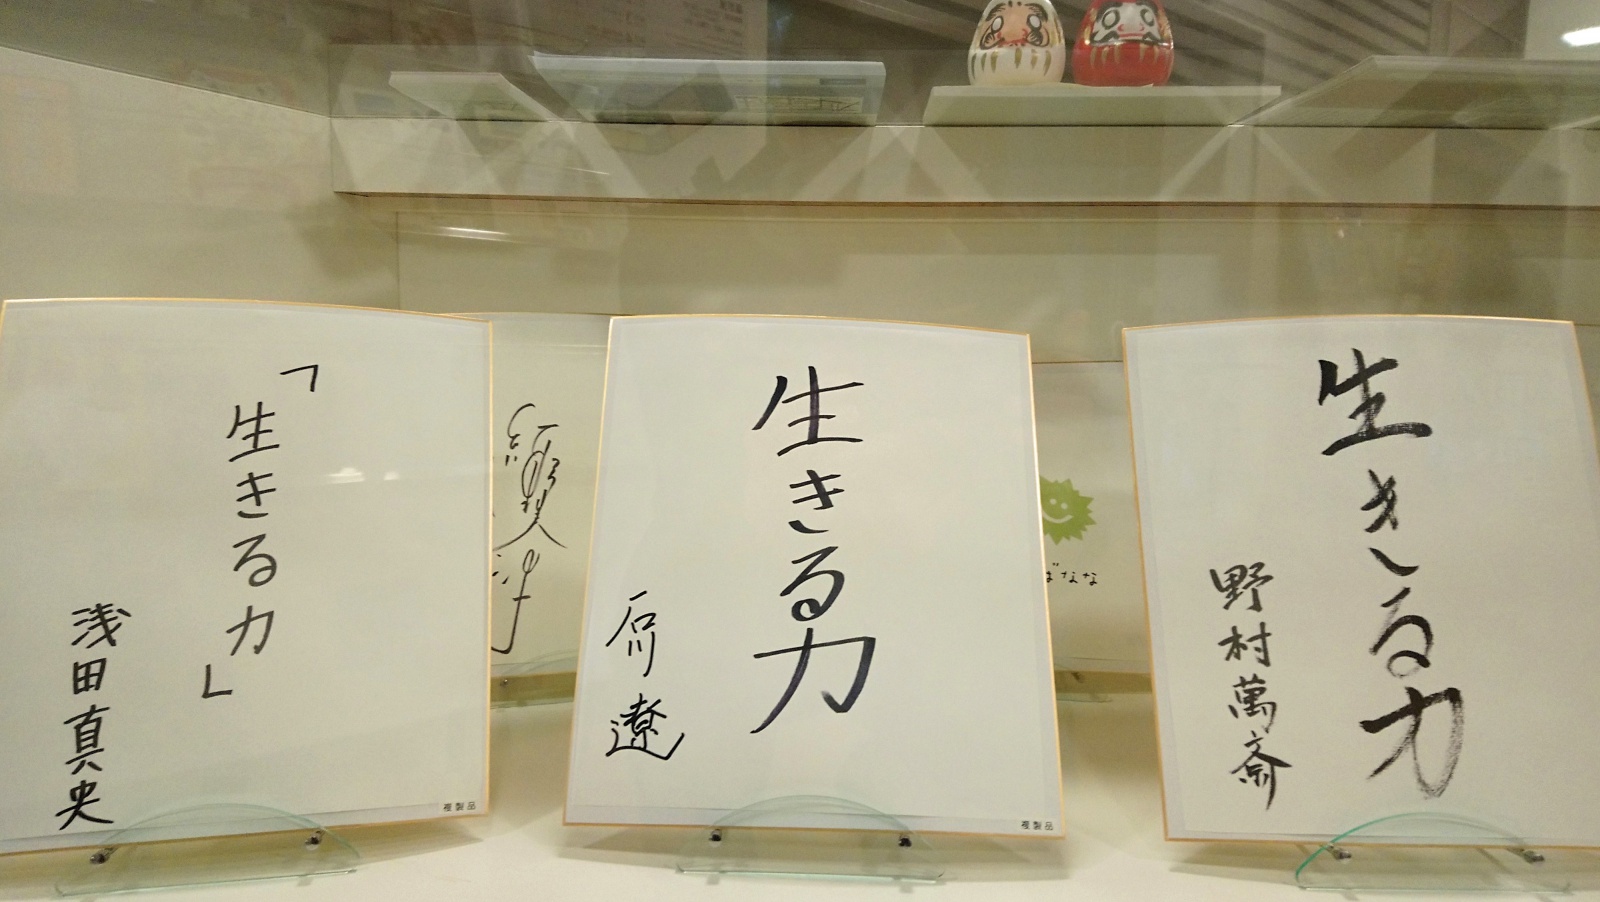 「生きる力」
浅田真央
複製品
生きる力
石川遼
複製品
ばなな
生きる力
野村萬斎